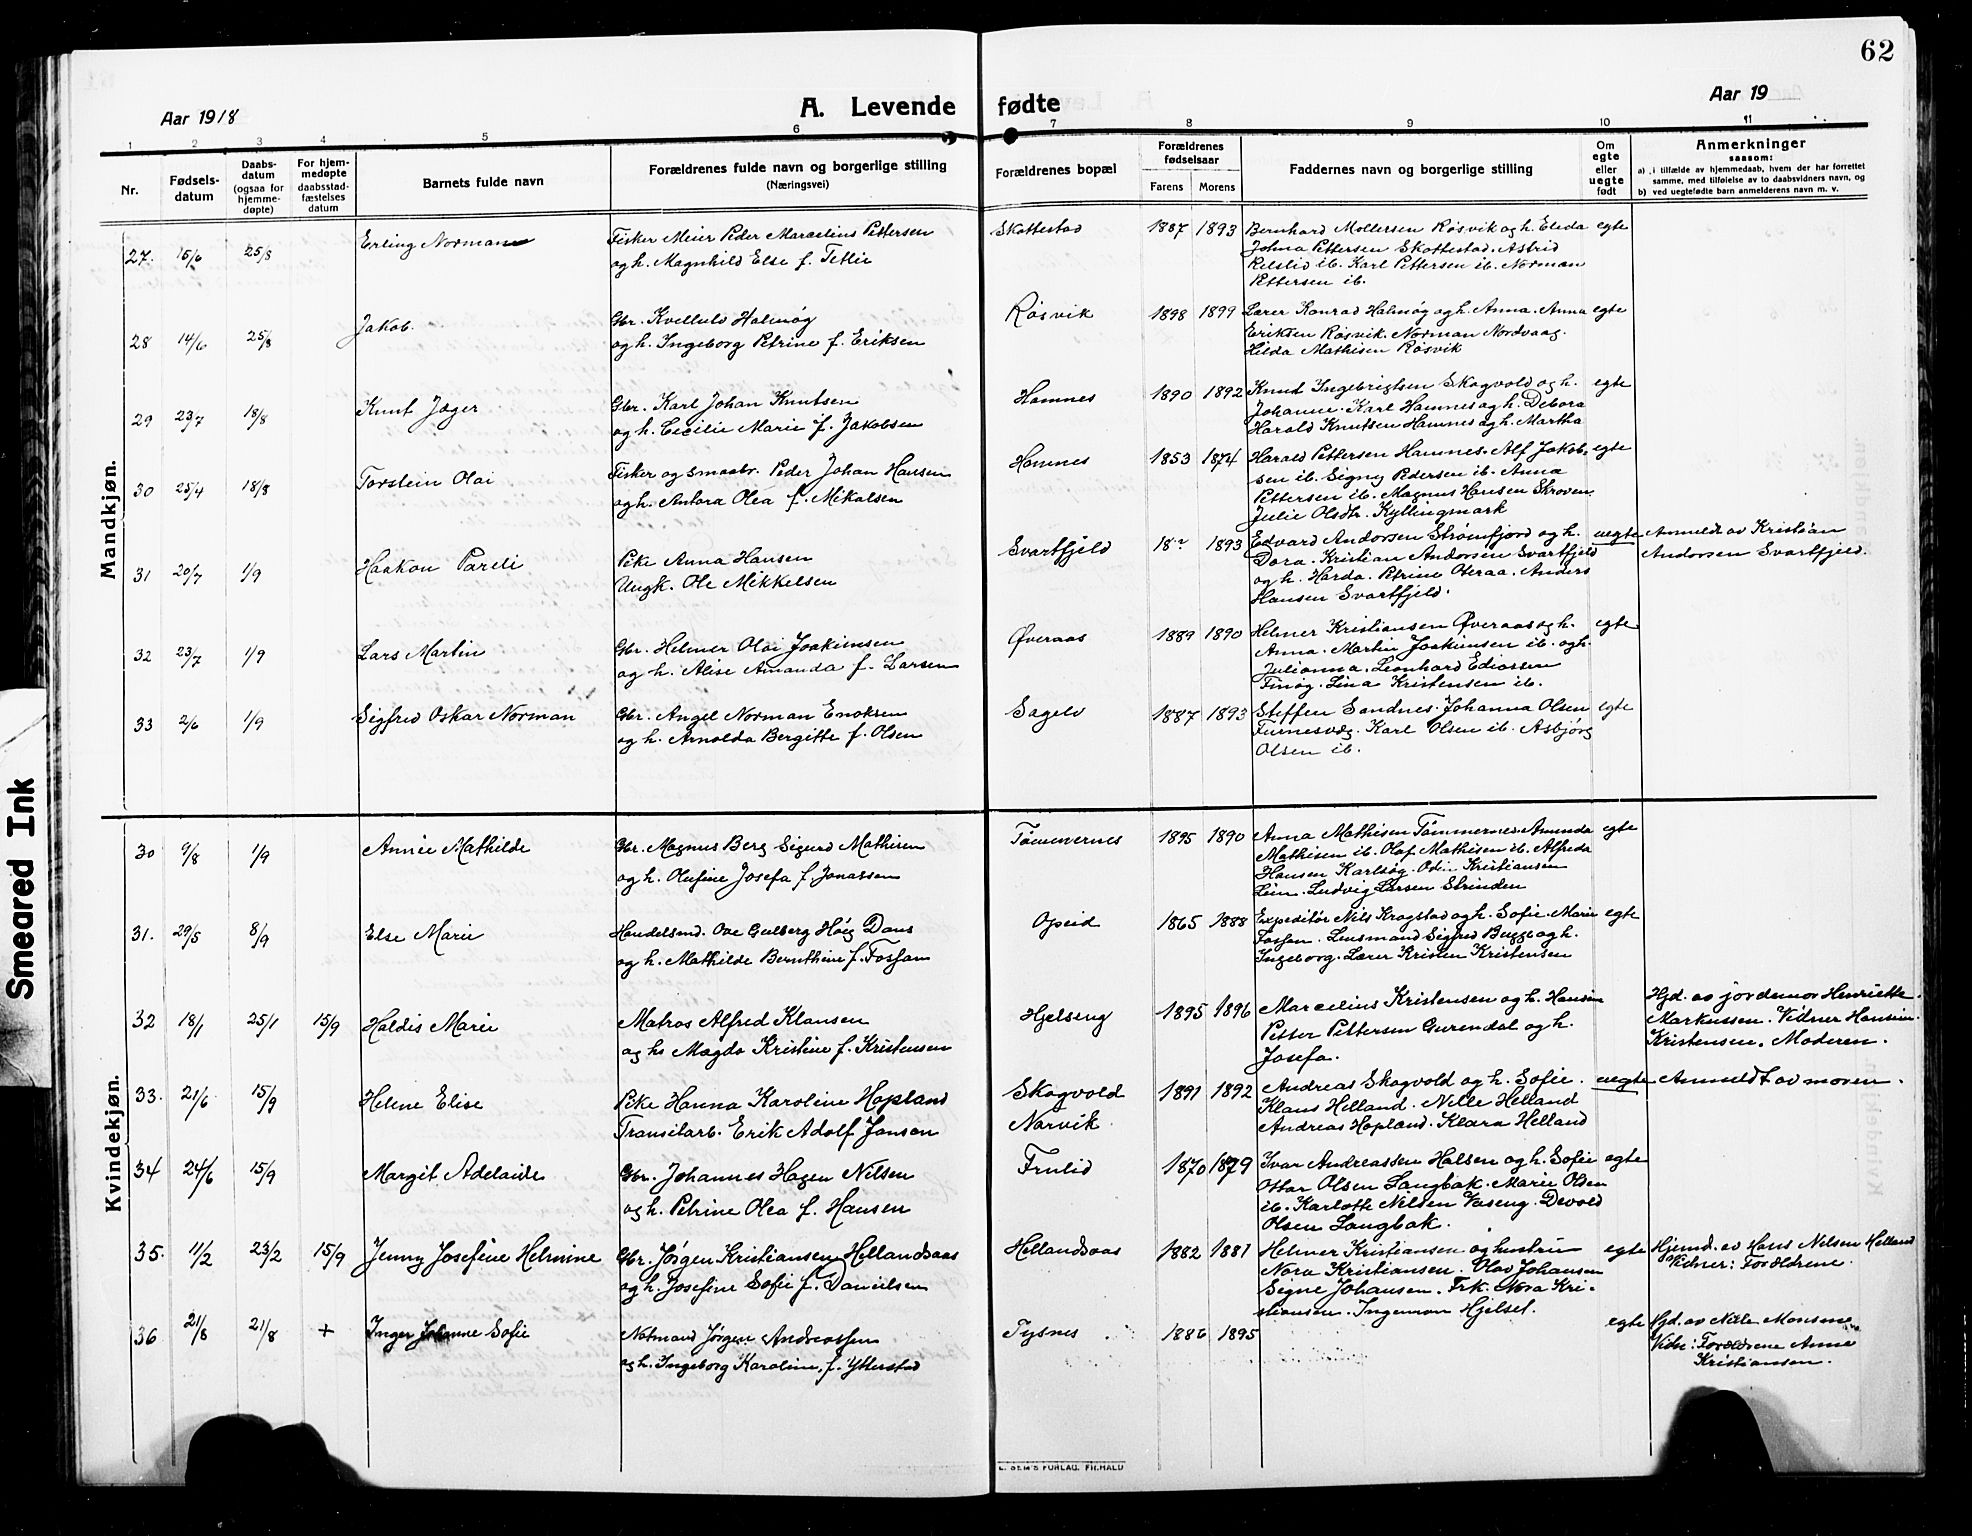 62
Aar 1918
A. Levende fødte
Aar 19
1 2 3 4 5 6 7 8 9 10 11
Nr.
Fødsels-
datum
Daabs-
datum
(ogsaa for
hjemme-
døpte)
For hjem-
medøpte
daabsstad-
fæstelses
datum
Barnets fulde navn
Forældrenes fulde navn og borgerlige stilling
(Næringsvei)
Forældrenes bopæl
Forældrenes
fødselsaar
Farens Morens
Faddernes navn og borgerlige stilling
Om
egte
eller
uegte
født
Anmerkninger
saasom:
a) i tilfælde av hjemmedaab, hvem der har forrettet
samme, med tilføielse av to daabsvidners navn, og
b) ved uegtefødte barn anmelderens navn m. v.
Mandkjøn.
27. 15/6 25/8 Erling Norman
Fisker Meier Peder Marcelius Pettersen
og h. Magnhild Else f. Tetlie
Skottestad 1887 1893
Bernhard Mollersen Røsvik og h. Elida
Johna Pettersen Skottestad. Astrid
Relslid ib. Karl Pettersen ib. Norman
Pettersen ib.
egte
28 14/6 25/8 Jakob.
Gbr. Kvellulv Halmøg
og h. Ingeborg Petrine f. Eriksen
Røsvik 1898 1899
Lærer Konrad Halmøg og h. Anna. Anna
Eriksen Røsvik. Norman Nordvaag.
Hilda Mathisen Røsvik
egte
29 23/7 18/8 Knut Jæger
Gbr. Karl Johan Knutsen
og h. Cecilie Marie f. Jakobsen
Hamnes 1890 1892
Knud Ingebrigtsen Skogvold og h.
Johanne. Karl Hamnes og h. Debora
Harald Knutsen Hamnes og h. Martha
egte
30 25/4 18/8 Torstein Olai
Fisker og smaabr. Peder Johan Hansen
og h. Antora Olea f. Mikalsen
Hamnes 1853 1874
Harald Pettersen Hamnes. Alf Jakob-
sen ib. Signy Pedersen ib. Anna
Pettersen ib. Magnus Hansen Skroven
Julie Olsdtr. Kyllingmark
egte
31 20/7 1/9 Haakon Pareli
Pike Anna Hansen
Ungk. Ole Mikkelsen
Svartfjeld 18? 1893
Edvard Andorsen Strømfjord og h.
Dora. Kristian Andorsen Svartfjeld
og h. Harda. Petrine Oteraa. Anders
Hansen Svartfjeld.
uegte
Anmeldt av Kristian
Andorsen Svartfjeld.
32 23/7 1/9 Lars Martin
Gbr. Helmer Olai Joakimsen
og h. Alise Amanda f. Larsen
Øveraas 1889 1890
Helmer Kristiansen Øveraas og h.
Anna. Martin Joakimsen ib. og h.
Julianna. Leonhard Ediassen
Finøg. Lina Kristensen ib.
egte
33 2/6 1/9 Sigfred Oskar Norman
Gbr. Angel Norman Enoksen
og h. Arnolda Bergitte f. Olsen
Sagelv 1887 1893
Steffen Sandnes. Johanna Olsen
Furnesvæg. Karl Olsen ib. Asbjørg
Olsen ib.
egte
Kvindekjøn.
30 9/8 1/9 Annie Mathilde
Gbr. Magnus Berg Sigurd Mathisen
og h. Olufine Josefa f. Jonassen
Tømmernes 1895 1890
Anna Mathisen Tømmernes. Amunda
Mathisen ib. Olaf Mathisen ib. Alfreda
Hansen Karlsøg. Odin Kristiansen
Lein. Ludvig Larsen Strinden
egte
31. 29/5 8/9 Else Marie
Handelsmd. Ove Gulberg Høeg Daus
og h. Mathilde Bernthine f. Fossam
Opeid 1865 1888
Expeditør Nils Kragstad og h. Sofie. Marie
Fossan. Lensmand Sigfred Bugge og h.
Ingeborg. Lærer Kristen Kristensen
egte
32 18/1 25/1 15/9 Haldis Marie
Matros Alfred Klausen
og h. Magda Kristine f. Kristensen
Hjelseng 1895 1896
Marcelius Kristensen og h. Hansine
Petter Pettersen Gurendal og h.
Josefa.
Hjd. av jordemor Henriette
Markussen. Vidner Hansine
Kristensen. Moderen.
33. 21/6 15/9 Helene Elise
Pike Hanna Karoline Hopland
Transitarb. Erik Adolf Janson
Skogvold
Narvik. 1891 1892
Andreas Skogvold og h. Sofie.
Klaus Helland. Nelle Helland
Andreas Hopland. Klara Helland
uegte Anmeldt av moren.
34 24/6 15/9 Margit Adelaide
Gbr. Johannes Hagen Nilsen
og h. Petrine Olea f. Hansen
Frulid 1870 1879
Ivar Andreassen Halsen og h. Sofie
Ottar Olsen Langbak. Marie Olsen
ib. Karlotte Nilsen Vaseng. Devold
Olsen Langbak.
egte
35. 11/2 23/2 15/9 Jenny Josefine Helmine
Gbr. Jørgen Kristiansen Hellandsaas
og h. Josefine Sofie f. Danielsen
Hellandsaas 1882 1881
Helmer Kristiansen og hustru
Nora Kristiansen. Olav Johansen
Segne Johansen. Frk. Nora Kri-
stiansen. Ingemon Hjelset.
egte
Hjemd. av Hans Nilsen Helland
Vidner: Forældrene.
36 21/8 21/8 + Inger Johanne Sofie
Notmand Jørgen Andreassen
og h. Ingeborg Karoline, f. Ytterstad
Tysnes 1886 1895
egte
Hjd. av Nille Monsine
Vidn: Forældrene Anna
Kristiansen.
E. SEM'S FORLAG. FR.HALD
Smeared Ink